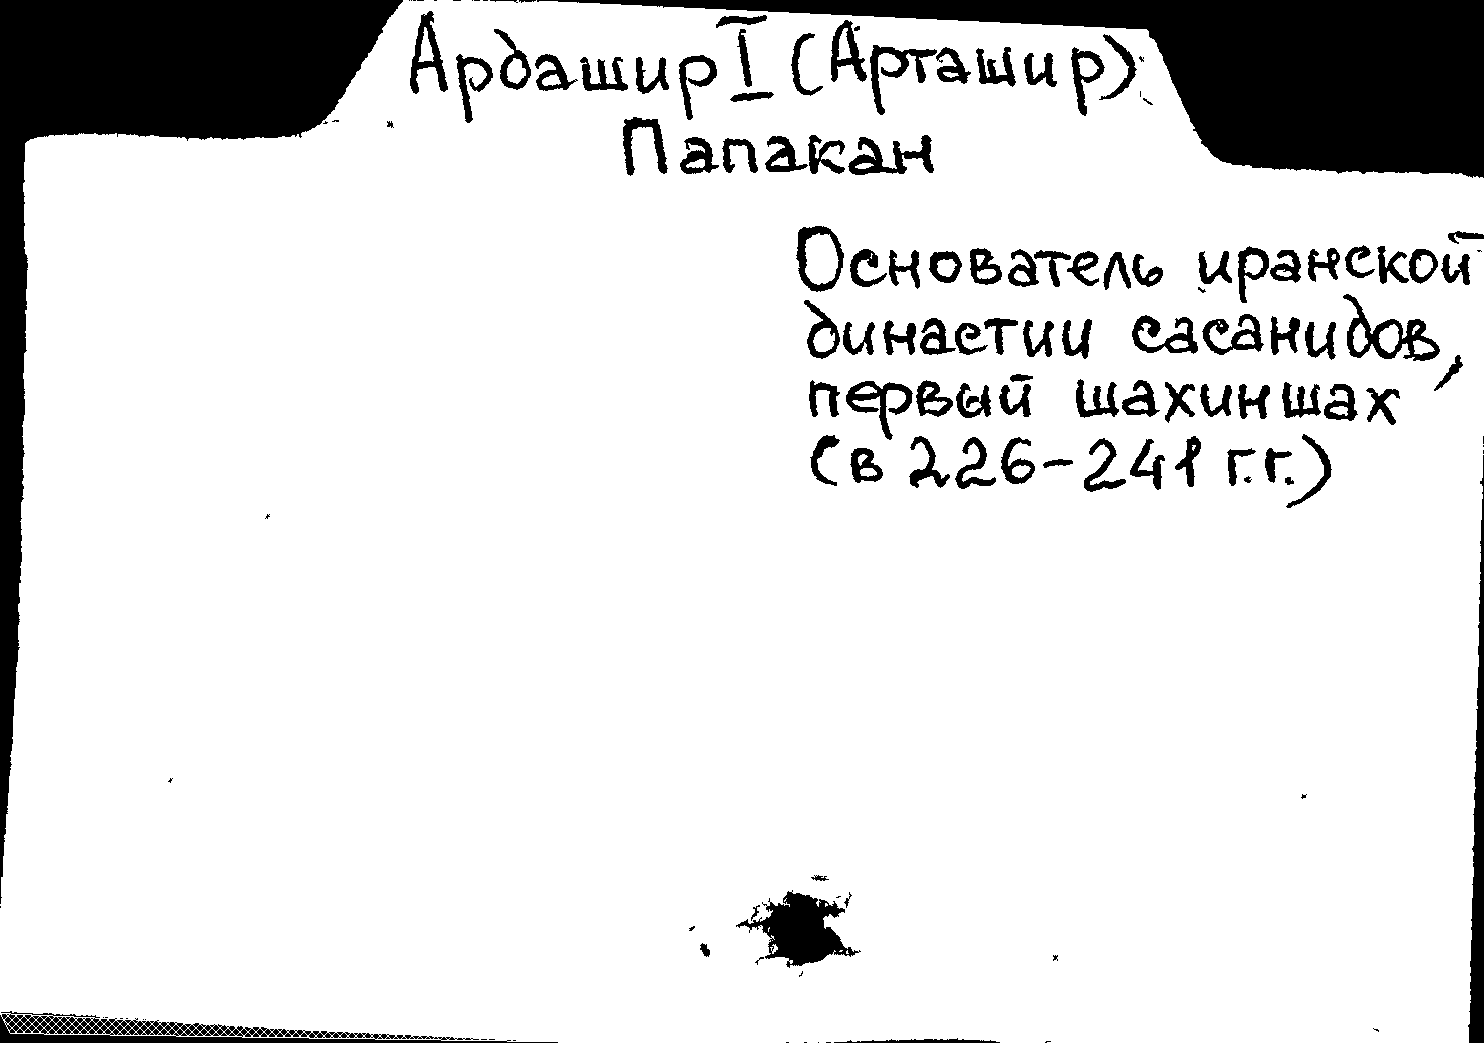 Ардашир I (Арташир)
Папакан
Основатель иранской
династии сасанидов,
первый шахиншах
(в 226-241 г.г.)